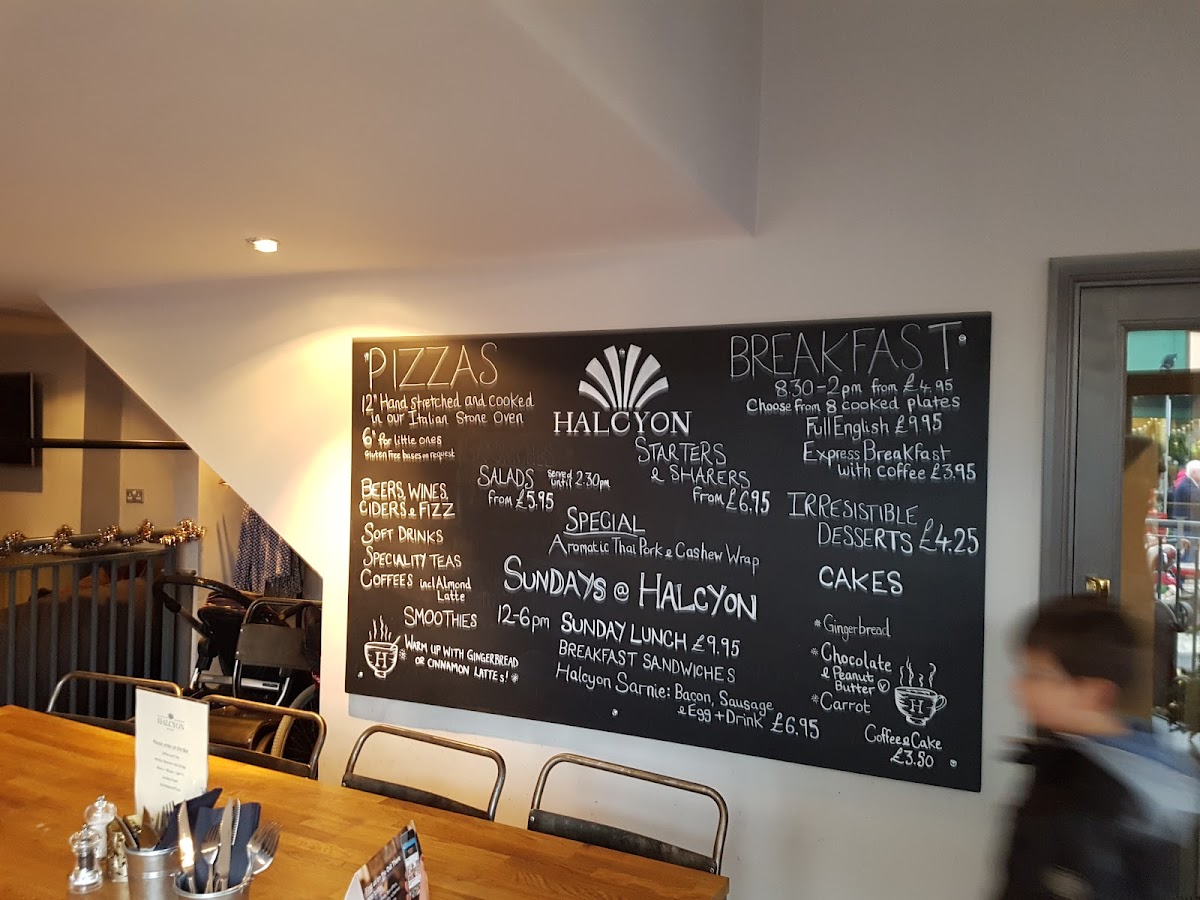 PIZZAS
12" Hand stretched and cooked
in our Italian Stone Oven
6" for little ones
Gluten Free bases on request
BEERS, WINES,
CIDERS & FIZZ
SOFT DRINKS
SPECIALITY TEAS
COFFEES incl Almond
Latte
SMOOTHIES
* WARM UP WITH GINGERBREAD
OR CINNAMON LATTES! *
H
HALCYON
STARTERS
& SHARERS
from £6.95
SALADS served
until 2.30pm
from £5.95
SPECIAL
Aromatic Thai Pork & Cashew Wrap
SUNDAYS @ HALCYON
12-6pm SUNDAY LUNCH £9.95
BREAKFAST SANDWICHES
Halcyon Sarnie: Bacon, Sausage
& Egg + Drink £6.95
BREAKFAST
8.30-2pm from £4.95
Choose from 8 cooked plates
Full English £9.95
Express Breakfast
with coffee £3.95
IRRESISTIBLE
DESSERTS £4.25
CAKES
* Gingerbread
* Chocolate
& Peanut
Butter V
* Carrot
H
Coffee & Cake
£3.50
HALCYON